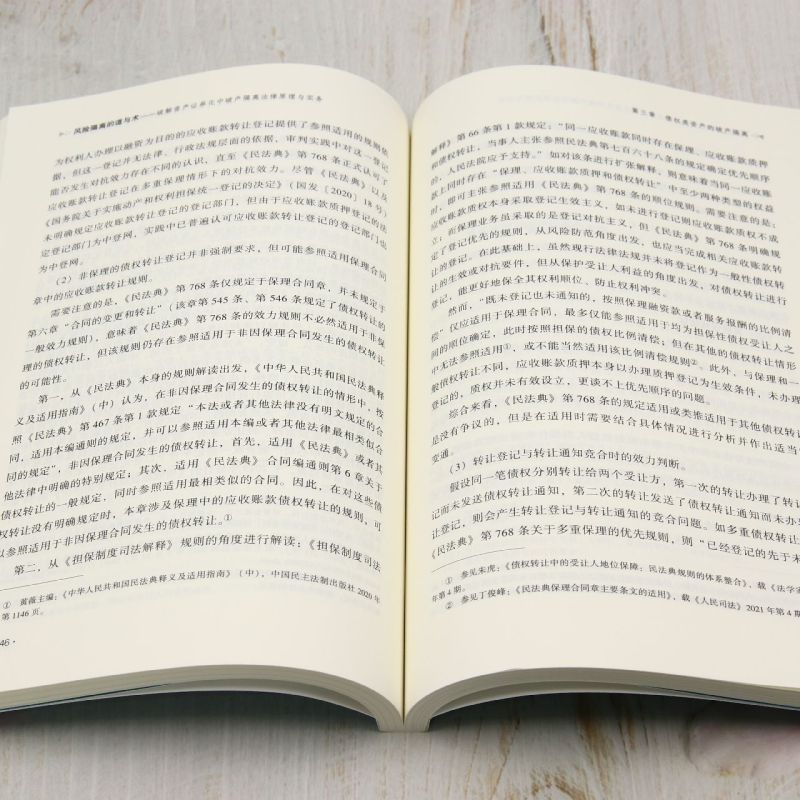 风险隔离的道与术——破解资产证券化中破产隔离法律原理与实务
为权利人办理以融资为目的的应收账款转让登记提供了参照适用的规则依
据，但这一登记并无法律、行政法规层面的依据，审判实践中对这一登记
能否发生对抗效力存在不同的认识，直至《民法典》第768条正式认可了
应收账款转让登记在多重保理情形下的对抗效力。尽管《民法典》以及
《国务院关于实施动产和权利担保统一登记的决定》（国发〔2020〕18号）
未明确规定应收账款转让登记的登记部门，但由于应收账款质押登记的法
定登记部门为中登网，实践中已普遍认可应收账款转让登记的登记部门也
为中登网。
（2）非保理的债权转让登记并非强制要求，但可能参照适用保理合同
章中的应收账款转让登记规则。
需要注意的是，《民法典》第768条仅规定于保理合同章，并未规定于
第六章“合同的变更和转让”（该章第545条、第546条规定了债权转让的
一般效力规则），意味着《民法典》第768条的效力规则不必然适用于非保
理的债权转让，但该规则仍存在参照适用于非因保理合同发生的债权转让
的可能性。
第一，从《民法典》本身的规则解读出发，《中华人民共和国民法典释
义及适用指南》（中）认为，在非因保理合同发生的债权转让的情形中，按
照《民法典》第467条第1款规定“本法或者其他法律没有明文规定的合
同，适用本编通则的规定，并可以参照适用本编或者其他法律最相类似合
同的规定”，非因保理合同发生的债权转让，首先，适用《民法典》或者其
他法律中明确的特别规定；其次，适用《民法典》合同编通则第6章关于
债权转让的一般规定，同时参照适用最相类似的合同。因此，在对这些债
权转让没有明确规定时，本章涉及保理中的应收账款债权转让的规则，可
以参照适用于非因保理合同发生的债权转让。①
第二，从《担保制度司法解释》规则的角度进行解读：《担保制度司法
① 黄薇主编：《中华人民共和国民法典释义及适用指南》（中），中国民主法制出版社2020年
第1146页。
46·
第三章：债权类资产的破产隔离
解释》第66条第1款规定：“同一应收账款同时存在保理、应收账款质押
和债权转让，当事人主张参照民法典第七百六十八条的规定确定优先顺序
的，人民法院应予支持。”如对该条进行扩张解释，则意味着当同一应收账
款上同时存在“保理、应收账款质押和债权转让”中至少两种类型的权益
时，即可主张参照适用《民法典》第768条的顺位规则。需要注意的是：
应收账款质权本身采取登记生效主义，如未进行登记则应收账款质权不成
立；而保理业务虽采取的是登记对抗主义，但《民法典》第768条明确规
定了登记优先的规则，从风险防范角度出发，也应当完成相关应收账款转
让的登记。在此基础上，虽然现行法律法规并未将登记作为一般性债权转
让的生效或对抗要件，但从保护受让人利益的角度出发，对债权转让进行
登记，能更好地保全其权利顺位、防止权利冲突。
然而，“既未登记也未通知的，按照保理融资款或者服务报酬的比例清
偿”仅应适用于保理合同，最多仅能参照适用于均为担保性债权受让人之
间的顺位确定，此时按照担保的债权比例清偿；但在其他的债权转让情形
中无法参照适用①，或不能当然适用该比例清偿规则②。此外，与保理和一
般债权转让不同，应收账款质押本身以办理质押登记为生效条件，未办理
登记的，质权并未有效设立，更谈不上优先顺序的问题。
综合来看，《民法典》第768条的规定适用或类推适用于其他债权转让
是没有争议的，但是在适用时需要结合具体情况进行分析并作出适当
变通。
（3）转让登记与转让通知竞合时的效力判断。
假设同一笔债权分别转让给两个受让方，第一次的转让办理了转让
记而未发送债权转让通知，第二次的转让发送了债权转让通知而未办
转让登记，则会产生转让登记与转让通知的竞合问题。如多重债权转让
《民法典》第768条关于多重保理的优先规则，则“已经登记的先于未
① 参见朱虎：《债权转让中的受让人地位保障：民法典规则的体系整合》，载《法学家
年第4期。
② 参见丁俊峰：《民法典保理合同章主要条文的适用》，载《人民司法》2021年第4期